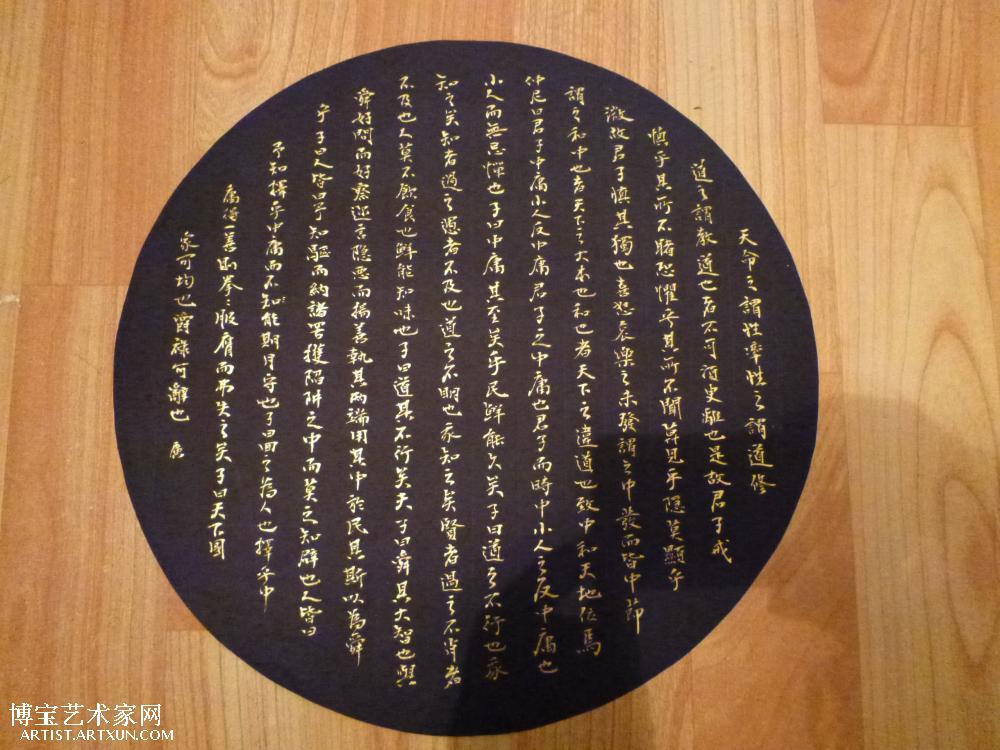 天命之謂性率性之謂道修
道之謂教道也者不可須臾離也是故君子戒
慎乎其所不睹恐懼乎其所不聞莫見乎隱莫顯乎
微故君子慎其獨也喜怒哀樂之未發謂之中發而皆中節
謂之和中也者天下之大本也和也者天下之達道也致中和天地位焉
仲尼曰君子中庸小人反中庸君子之中庸也君子而時中小人之反中庸也
小人而無忌憚也子曰中庸其至矣乎民鮮能久矣子曰道之不行也我
知之矣知者過之愚者不及也道之不明也我知之矣賢者過之不肖者
不及也人莫不飲食也鮮能知味也子曰道其不行矣夫子曰舜其大智也與
舜好問而好察邇言隱惡而揚善執其兩端用其中於民其斯以為舜
乎子曰人皆曰予知驅而納諸罟擭陷阱之中而莫之知辟也人皆曰
予知擇乎中庸而不知能期月守也子曰回之為人也擇乎中
庸得一善則拳〻服膺而弗失之矣子曰天下國
家可均也爵祿可離也
博宝艺术家网
ARTIST.ARTXUN.COM